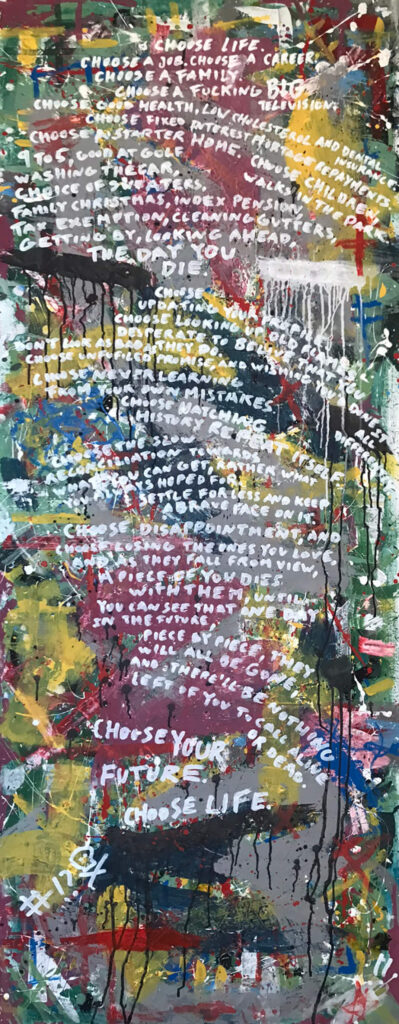 CHOOSE LIFE.
CHOOSE A JOB. CHOOSE A CAREER.
CHOOSE A FAMILY.
CHOOSE A FUCKING BIG
TELEVISION.
CHOOSE GOOD HEALTH, LOW CHOLESTEROL AND DENTAL
INSURANCE.
CHOOSE FIXED INTEREST MORTGAGE REPAYMENTS.
CHOOSE A STARTER HOME. CHOOSE CHILDREN,
WALKS IN THE PARK
9 TO 5, GOOD AT GOLF,
WASHING THE CAR,
CHOICE OF SWEATERS,
FAMILY CHRISTMAS, INDEX PENSION,
TAX EXEMPTION, CLEANING GUTTERS,
GETTING BY, LOOKING AHEAD,
THE DAY YOU
DIE.
CHOOSE
UPDATING YOUR
CHOOSE LOOKING UP OLD
DESPERATE TO BELIEVE THAT YOU
DON'T LOOK AS BAD AS THEY DO.
CHOOSE UNFULFILLED PROMISE
AND WISHING YOU'D DONE IT ALL
DIFFERENTLY
CHOOSE NOT LEARNING
FROM YOUR OWN MISTAKES.
CHOOSE WATCHING
HISTORY REPEAT ITSELF
CHOOSE THE SLOW TOWARDS
RECONCILIATION
WHAT YOU CAN GET, RATHER WHAT
YOU ALWAYS HOPED FOR.
SETTLE FOR LESS AND KEEP
A BRAVE FACE ON IT.
CHOOSE DISAPPOINTMENT AND
CHOOSE LOSING THE ONES YOU LOVE,
AND AS THEY FALL FROM VIEW,
A PIECE OF YOU DIES
WITH THEM UNTIL
YOU CAN SEE THAT ONE DAY
IN THE FUTURE
PIECE AT PIECE THEY
WILL ALL BE GONE
AND THERE'LL BE NOTHING
LEFT OF YOU TO CALL ALIVE
OR DEAD.
CHOOSE YOUR
FUTURE.
CHOOSE LIFE.